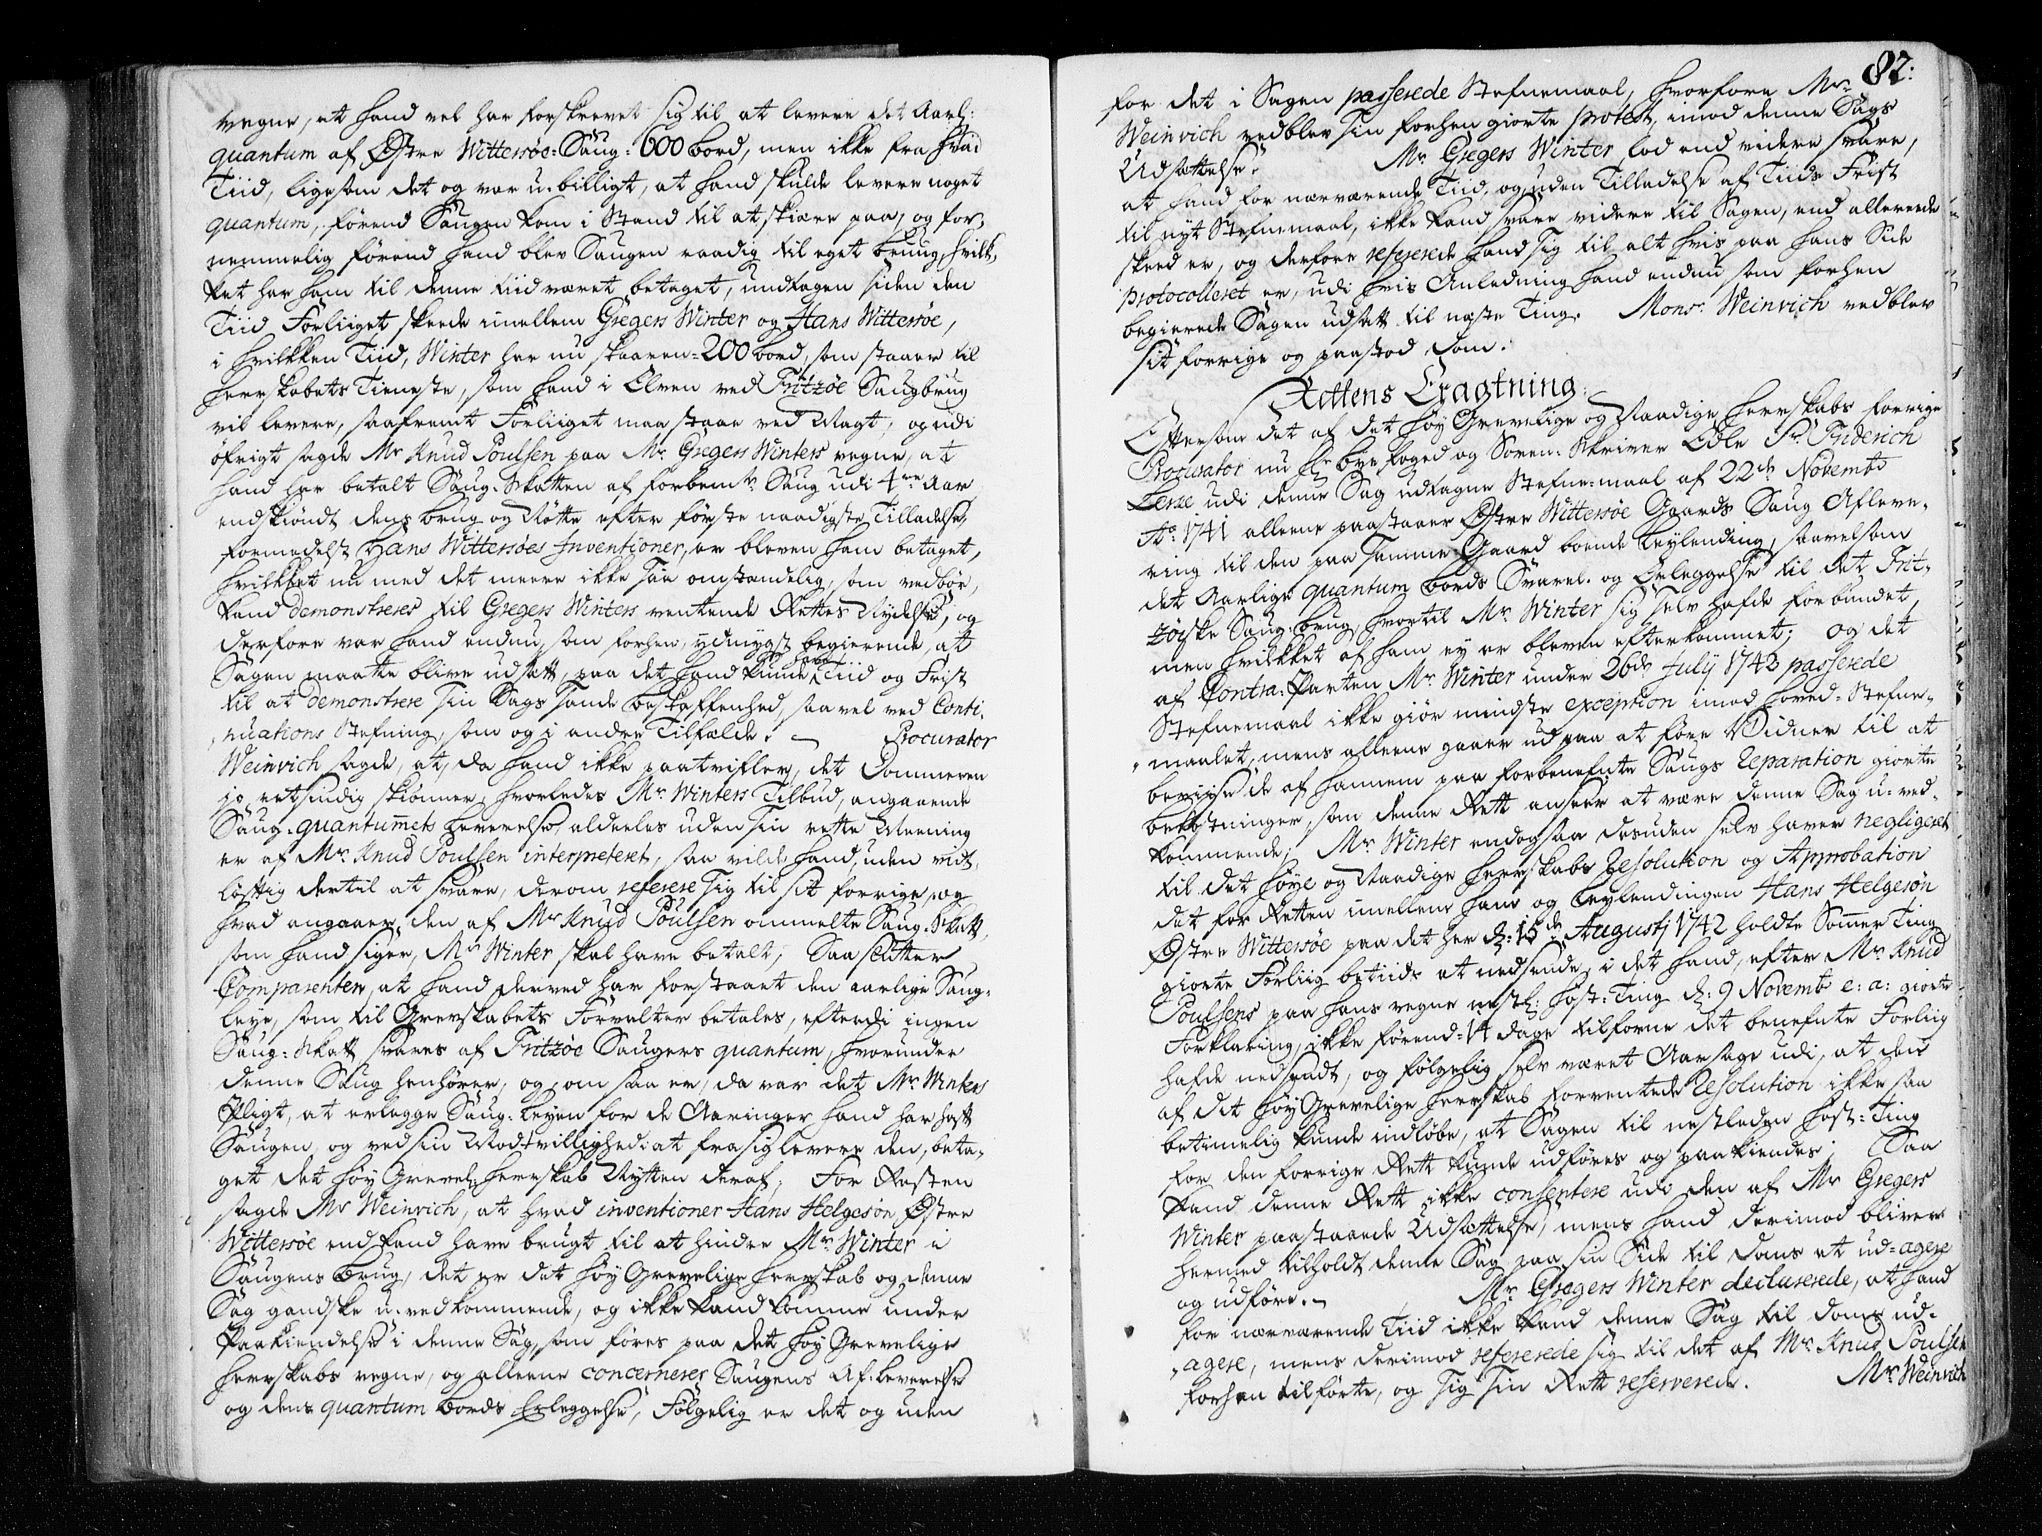 vegne, at hand vel har forskrevet sig til at levere det Aarl:
quantum af Østre Wittersøe-Saug: 600 bord, men ikke fra hvad
Tiid, ligesom det og var u-billigt, at hand skulde levere noget
quantum, førend Saugen kom i Stand til at skiære paa, og for-
nemmelig førend hand blev Saugen raadig til eget brug, hvil-
ket har ham til denne tiid været betaget, undtagen siden den
Tiid Forliiget skeede imellem Gregers Winter og Hans Wittersøe,
i hvilken Tiid, Winter har nu skaaren-200 bord, som staaer til
Herskabets Tieneste, som hand i Elven ved Fritzøe Saugbrug
vil levere, saafremt Forliiget maa staae ved Magt, og udi
øfrigt sagde Mr Knud Poulsen paa Mr Gregers Winters vegne, at
hand har betalt Saug-Skatten af forbemte Saug udi 4re Aar
endskiøndt dens brug og Nøtte efter første naadigste Tilladelse,
formedelst Hans Wittersøes Inventioner, er bleven ham betaget,
hvilket nu med det meere ikke saa omstændelig, som vedbør,
kand demonstreres til Gregers Winters ventende Rettes Nydelse, og
derfore var hand endnu, som forhen, ydmygst begierende, at
Sagen maatte blive udsatt, paa det hand kunde have Tiid og Frist
til at demonstrere sin Sags sande beskaffenhed, saavel ved Conti-
nuations Stefning, som og i andre Tilfælde. - Procurator
Weinvich sagde, at, da hand ikke paatvifler, det Dommeren
jo retsindig skiønner, hvorledes Mr Winters Tilbud, angaaende
Saug-quantumets Leverelse, aldeeles uden sin rette Meening
er af Mr Knud Poulsen interpreteret, saa vilde hand, uden vidt-
løftig dertil at svare, derom referere sig til sit forrige, og
hvad angaaer den af Mr Knud Poulsen ommelte Saug-Skatt,
som hand siger, Mr Winter skal have betalt, Saa slutter
Comparenten, at hand derved har forstaaet den aarlige Saug-
Leye, som til Grevskabets Forvalter betales, efterdi ingen
Saug-Skatt svares af Fritzøe Saugers quantum, hvorunder
denne Saug henhører, og, om saa er, da var det Mr Winters
Pligt, at erlegge Saug-Leyen for de Aaringer hand har haft
Saugen, og ved sin Modtvillighed at fra sig levere den, beta-
get det høy Grevel: Herskab Nytten deraf, For Resten
sagde Mr Weinvich, at hvad inventioner Hans Helgesøn Østre
Wittersøe end kand have brugt til at hindre Mr Winter i
Saugens brug, det er det høy Grevelige Herskab og denne
Sag gandske u-vedkommende, og ikke kand komme under
Paakiendelse i denne Sag, som føres paa det høy Grevelige
Herskabs vegne, og alleene concernerer Saugens Af-leverelse
og dens quantum bords Erleggelse, Følgelig er det og uden
82:
for det i Sagen passerede Stefnemaal, hvorfore Mr
Weinvich vedblev sin forhen giorte protest, imod denne Sags
Udsættelse. Mr Gregers Winter lod end videre svare,
at hand for nærværende Tiid, og uden Tilladelse af Tiids Frist
til nyt Stefnemaal, ikke kand svare videre til Sagen, end allereede
skeed er, og derfore refererede hand sig til alt hvis paa hans Side
protocolleret er, udi hvis Anledning hand endnu som forhen
begierede Sagen udsatt til næste Ting. Monsr Weinvich vedblev
sit forrige og paastod dom.
Rettens Eragtning:
Eftersom det af det høy Grevelige og Naadige Herskabs forrige
Procurator nu Hr byefoged og Soren-Skriver Edle Sr Friderich
Terse udi denne Sag udtagne Stefne-maal af 22de Novembr
Ao 1741 alleene paastaaer Østre Wittersøe Gaards Saug Afleve-
ring til den paa samme Gaard boende Leylending, saavelsom
det Aarlige quantum bords Svarel: og Erleggelse til det Frit-
zøiske Saug-brug, hvortil Mr Winter sig selv hafde forbundet,
men hvilket af ham ey er bleven efterkommet; og det
af Contra-Parten Mr Winter under 26de July 1743 passerede
Stefnemaal ikke giør mindste exception imod hoved-Stefne-
maalet, mens alleene gaaer ud paa at føre Vidner til at
bevise de af hannem paa forbenefnte Saugs Reparation giorte
bekostninger, som denne Rett anseer at være denne Sag u-ved-
kommende; Mr Winter endogsaa desuden selv haver negligeret
til det høye og Naadige Herskabs Resolution og Approbation
det for Retten imellem ham og Leylendingen Hans Helgesøn
Østre Wittersøe paa det her d: 15de Augustj 1742 holdte Sommer Ting
giorte Forliig betiids at nedsende, i det hand, efter Mr Knud
Poulsens paa hans vegne nestl: høst-Ting d: 9 Novembr e: a: giorte
Forklaring, ikke førend-14 dage tilforne det benefnte Forliig
hafde nedsendt, og følgelig selv været Aarsage udi, at den
af det høy Grevelige Herskab forventede Resolution ikke saa
betimelig kunde indløbe, at Sagen til nestleden høst-Ting
for den forrige Rett kunde udføres og paakiendes; Saa
kand denne Rett ikke consentere udi den af Mr Gregers
Winter paastaaede Udsættelse, mens hand derimod bliver
hermed tilholdt denne Sag paa sin Side til doms at ud-agere
og udføre. - Mr Gregers Winter declarerede, at hand
for nærværende Tiid ikke kand denne Sag til doms ud-
agere, mens derimod refererede sig til det af Mr Knud Poulsen
forhen tilførte, og sig sin Rett reserverede. Mr Weinvich